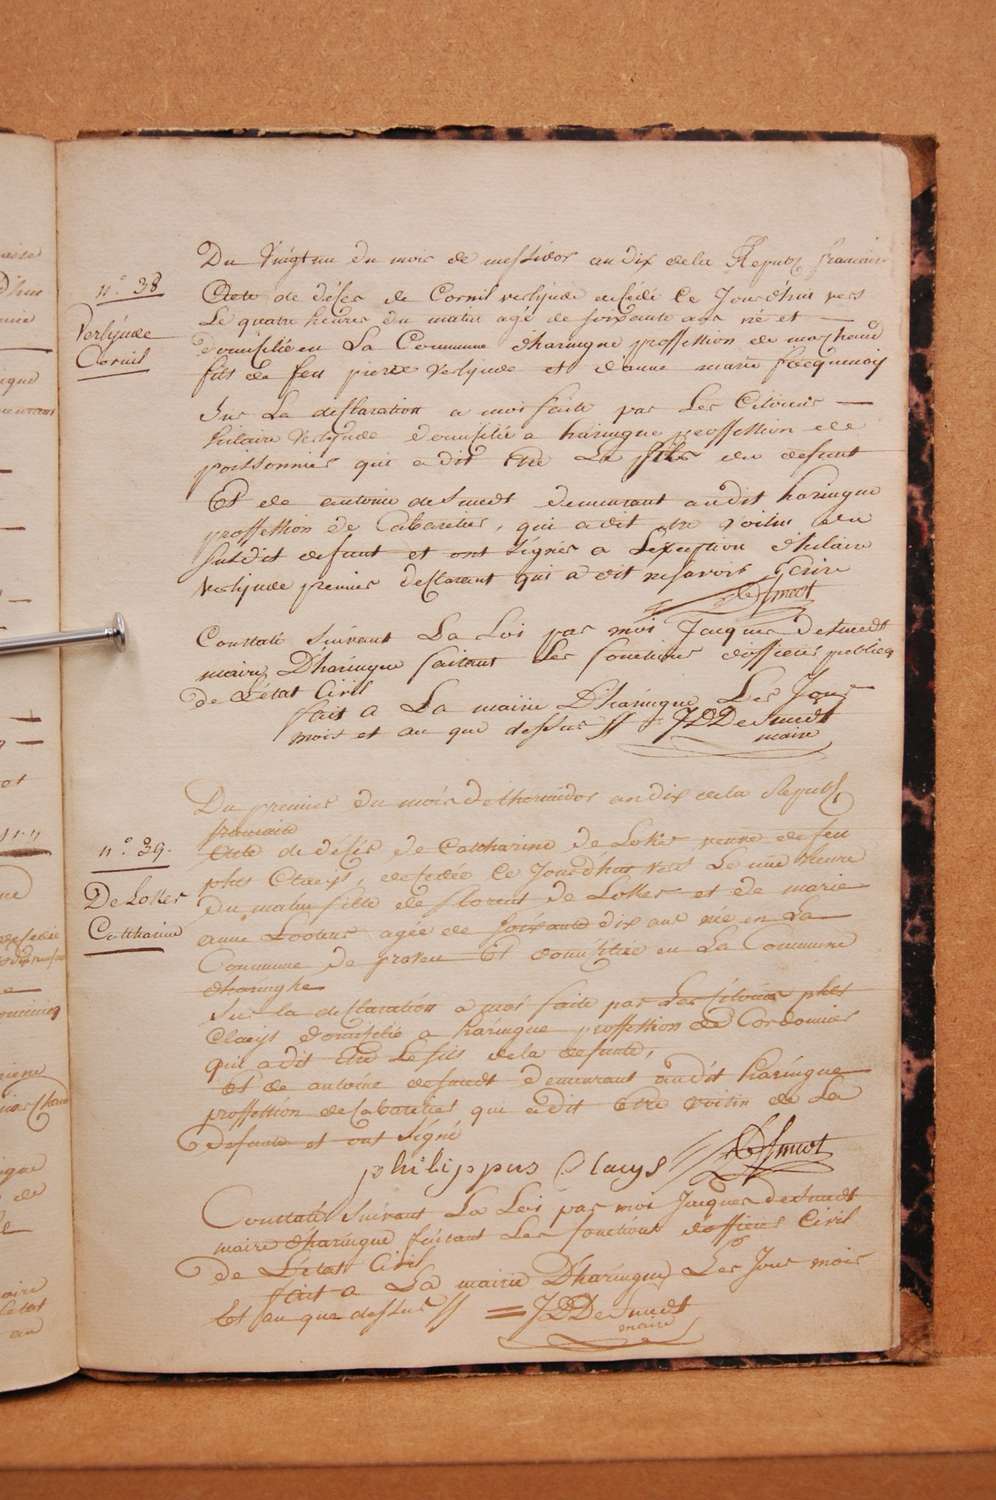 n.° 38
Verlynde
Cornil
Du Vingt un du mois de messidor an dix de la Republ francaise
Acte de déses de Cornil verlynde desedé ce Jourdhui vers
Le quatre heures du matin agé de soixante ans né et —
domisilié en La Commune dharingue proffession de marchand
fils de feu pierre verlynde et danne marie
Sur La desclaration a moi faite par Les Citoiens —
hilaire verlynde domisilié a haringue proffession de
poissonnier qui a dit etre Le fils du defunt
Et de antoine desmedt demeurant audit haringue
proffession de Cabaretier, qui a dit etre voisin du
susdit defunt et ont signés a L'exseption dhilaire
verlynde premier desclarant qui a dit ne savoir Ecrire
Desmedt
Constaté suivant La Loi par moi Jacques desmedt
maire D'haringue faisant Les fonctions d'offisier publicq
de L'état Civil
fait a La mairie D'haringue Les Jour
mois et an que dessus // JDDesmedt
maire
n.° 39.
De Lokes
Catharine
Du premier du mois de thermidor an dix de la Republ
francaise
Acte de déses de Catharine de Lokes veuve de feu
phls Claeys, desedée ce Jourdhui vers Le une heure
du matin fille de florent de Lokes et de marie
anne Looters agée de soixante dix ans née en La
Commune de proven Et domisiliée en La Commune
dharinghe
Sur la desclaration a moi faite par Les Citoien phls
Claeys domisilié a haringue proffession de Cordonnier
qui a dit etre Le fils de la defunte,
et de antoine desmedt demeurant audit haringue
proffession de Cabaretier qui a dit etre voisin de La
defunte et ont signé
philippus Claeys // Desmedt
Constaté suivant La Loi par moi Jacques desmedt
maire dharingue faisant Les fonctions d'offisier Civil
de L'état Civil
fait a La mairie D'haringue Les Jour mois
Et an que dessus // = JDDesmedt
maire